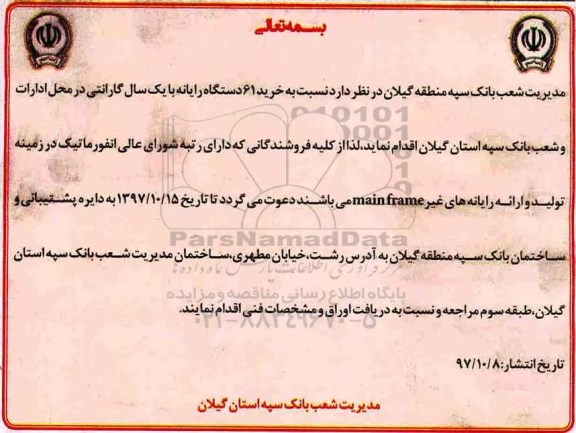 بسمه‌تعالی
مدیریت شعب بانک سپه منطقه گیلان در نظر دارد نسبت به خرید ۶۱ دستگاه رایانه با یک سال گارانتی در محل ادارات
و شعب بانک سپه استان گیلان اقدام نماید، لذا از کلیه فروشندگانی که دارای رتبه شورای عالی انفورماتیک در زمینه
تولید و ارائه رایانه های غیر main frame می باشند دعوت می گردد تا تاریخ ۱۳۹۷/۱۰/۱۵ به دایره پشتیبانی و
ParsNamadData
ساختمان بانک سپه منطقه گیلان به آدرس رشت، خیابان مطهری، ساختمان مدیریت شعب بانک سپه استان
پایگاه اطلاع رسانی مناقصه و مزایده
گیلان، طبقه سوم مراجعه و نسبت به دریافت اوراق و مشخصات فنی اقدام نمایند.
۰۲۱-۸۸۳۴۹۶۷۰-۵
تاریخ انتشار: ۹۷/۱۰/۸
مدیریت شعب بانک سپه استان گیلان